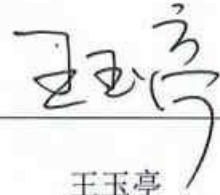 王玉亭
王玉亭